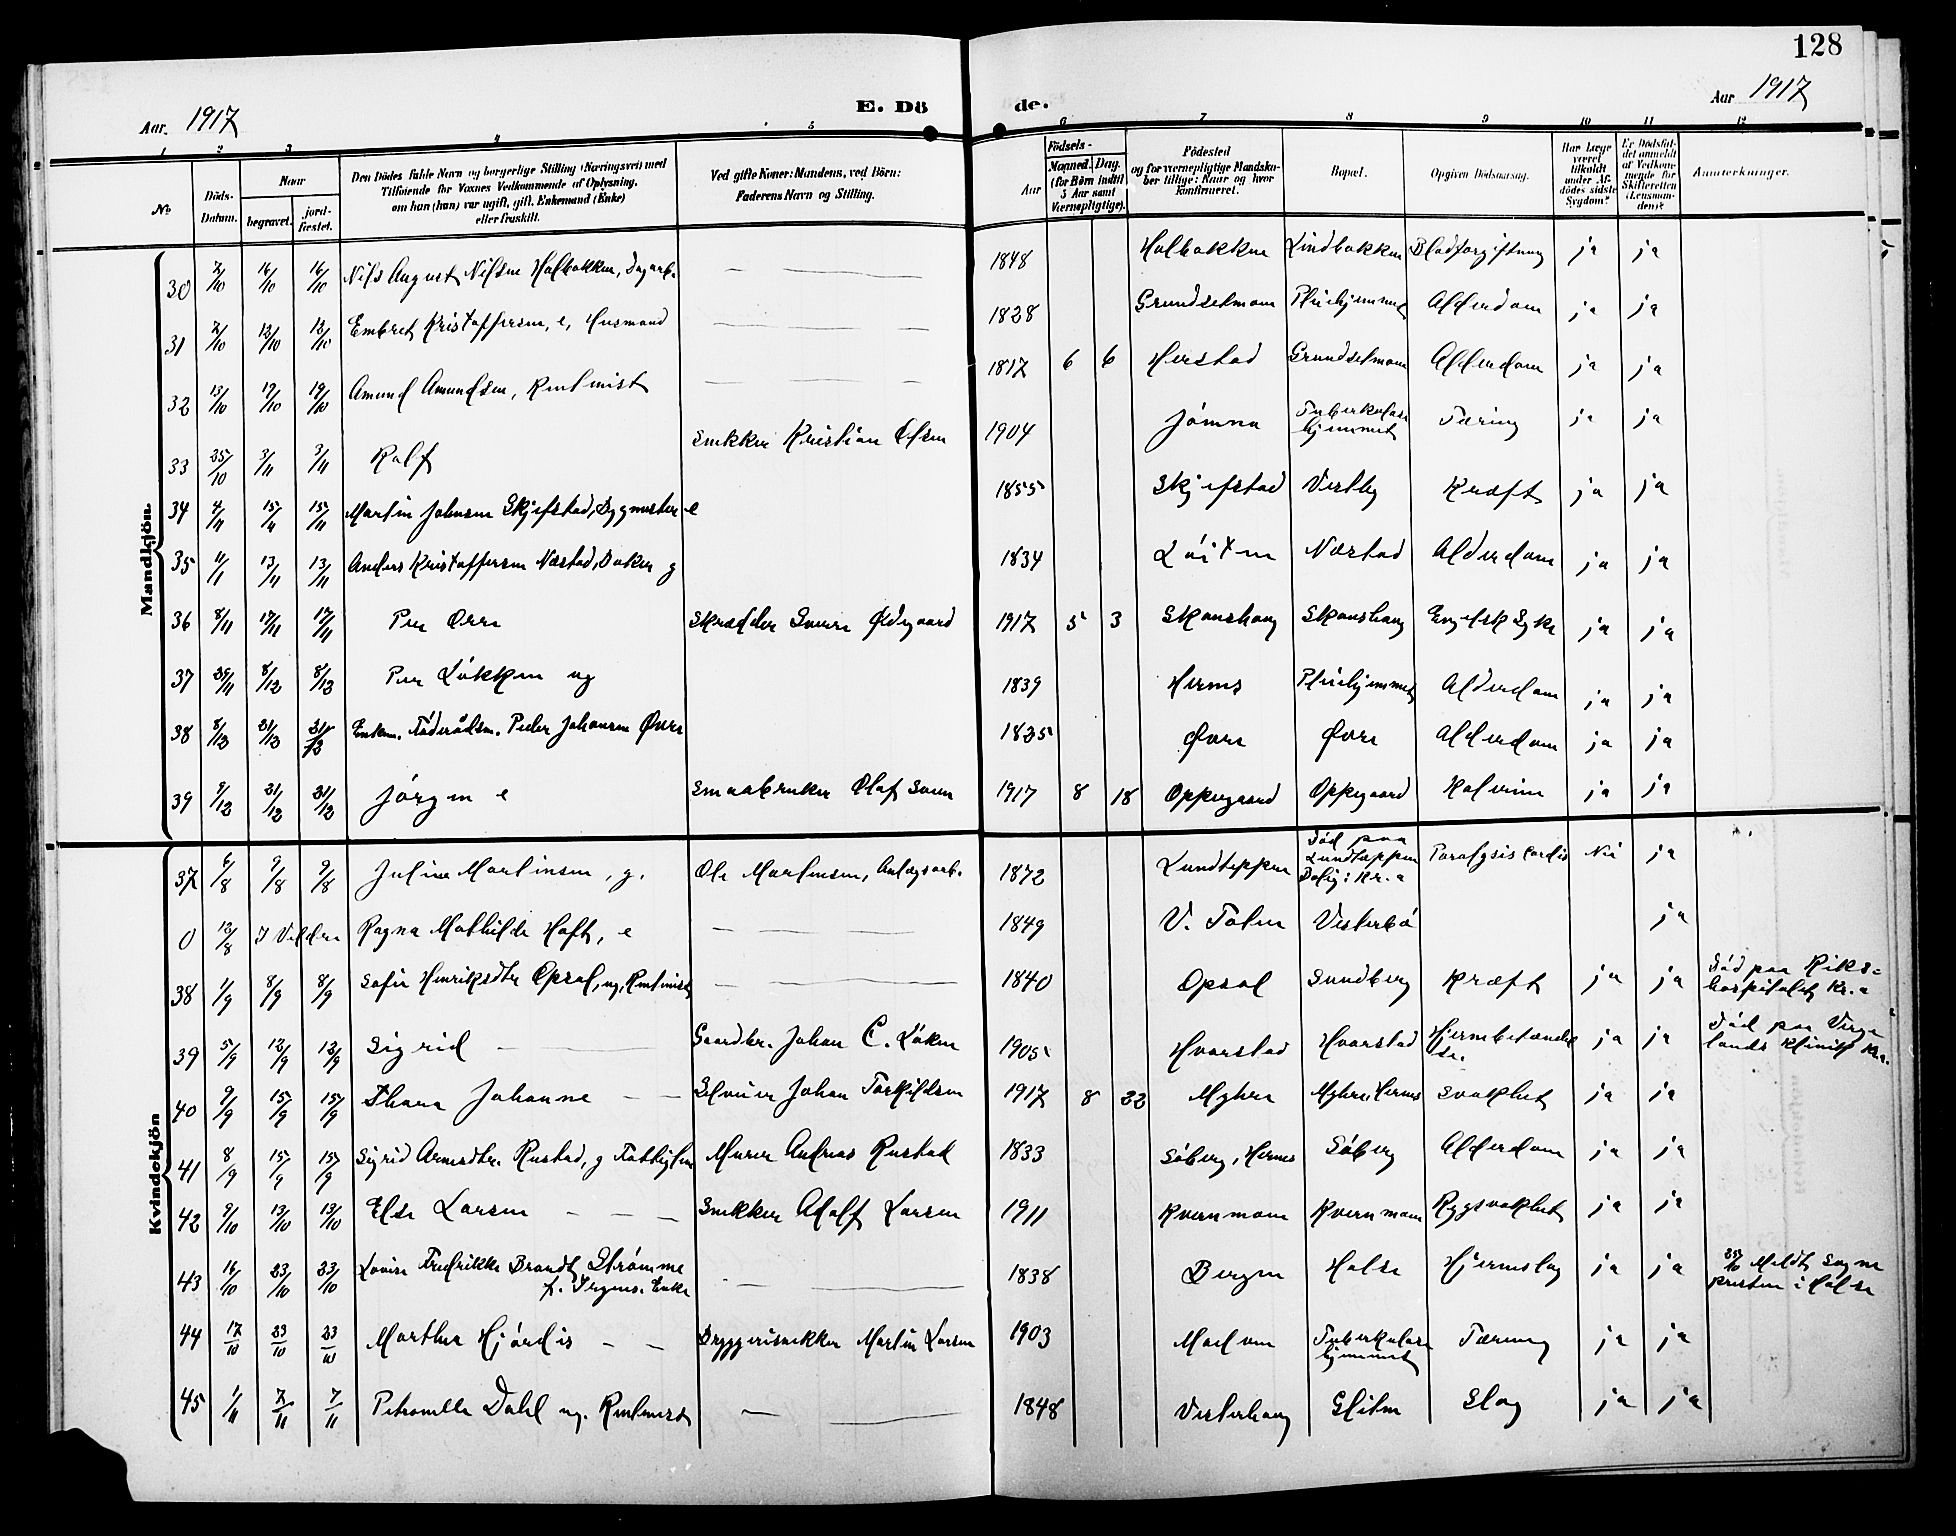 128
Aar. 1917
E. Dö
de.
Aar 1917
1 2 3 4 5 6 7 8 9 10 11 12
No
Döds-Datum.
Naar
begravet.
jordfæstet.
Den Dödes fulde Navn og borgerlige Stilling (Næringsvei) med
Tilföiende for Voxnes Vedkommende af Oplysning,
om han (hun) var ugift, gift, Enkemand (Enke)
eller fraskilt.
Ved gifte Koner: Mandens, ved Börn:
Faderens Navn og Stilling.
Födsels-
Aar
Maaned. Dag.
(for Börn indtil
5 Aar samt
Værnepligtige).
Födested
og for værnepligtige Mandska-
ber tillige: Naar og hvor
konfirmeret.
Bopæl.
Opgiven Dödsaarsag.
Har Læge
været
tilkaldt
under Af-
dödes sidste
Sygdom?
Er Dödsfal-
det anmeldt
af Vedkom-
mende for
Skifteretten
(Lensman-
den)?
Anmærkninger.
Mandkjön.
30 7/10 16/10 16/10 Nils August Nilsen Holbakken, Dagarb. — — 1848 Holbakken Lindbakken Blodforgiftning ja ja
31 7/10 12/10 12/10 Embret Kristoffersen, e, Husmand — — 1828 Grundsetmoen Pleiehjemmet Alderdom ja ja
32 13/10 19/10 19/10 Amund Amundsen, Rentenist — — 1817 6 6 Herstad Grundsetmoen Alderdom ja ja
33 25/10 3/11 3/11 Rolf Snekker Kristian Olsen 1904 Jömna Tuberkulosehjemmet Tæring ja ja
34 4/11 15/11 15/11 Martin Johnsen Skjefstad, Bygmester e 1855 Skjefstad Vestby Kræft ja ja
35 4/11 13/11 13/11 Anders Kristoffersen Næstad, Baker g 1834 Löiten Næstad Alderdom ja ja
36 8/11 17/11 17/11 Per Orre Skrædder Sverre Ødegaard 1917 5 3 Skanshaug Skanshaug Engelsk Syke ja ja
37 29/11 8/12 8/12 Per Løkken ug 1839 Hernes Pleiehjemmet Alderdom ja ja
38 8/12 21/12 21/12 Enkem. Föderådsm. Peder Johansen Øvre 1835 Øvre Øvre Alderdom ja ja
39 9/12 21/12 21/12 Jörgen e Smaabruker Olaf Soen 1917 8 18 Oppegaard Oppegaard Kolerine ja ja
Kvindekjön
37 6/8 9/8 9/8 Juline Martinsen, g. Ole Martinsen, Anlægsarb. 1872 Lundteppen Död paa Lundtæppen Bolig: Kr.a Paralysis Cordis Nei ja
0 12/8 I Veldre Ragna Mathilde Hoft, e — — 1849 V. Toten Vesterbö ja
38 1/9 8/9 8/9 Sofie Henriksdtr Opsal, ug, Rentenist — — 1840 Opsal Sundberg Kræft ja ja Död paa Riks-
hospitalet Kr.a
39 5/9 12/9 12/9 Sigrid — — Gaardbr. Johan C. Løken 1905 Hvarstad Hvarstad Hjernebetændelse. ja ja Död paa Verge
lands Klinik Kr.a.
40 9/9 15/9 15/9 Thora Johanne — — Selveier Johan Torkildsen 1917 8 22 Myhre Myhre, Hernes Svakhet ja ja
41 8/9 15/9 15/9 Sigrid Arnesdtr. Rustad, g Fattiglem Murer Andreas Rustad 1833 Söberg, Hernes Söberg Alderdom ja ja
42 9/10 13/10 13/10 Else Larsen — — — Snekker Adolf Larsen 1911 Kvernmoen Kvernmoen Rygsvakhet ja ja
43 16/10 23/10 23/10 Lovise Fredrikke Brandt Strømme
f. Irgens. Enke — — 1838 Bergen Holse Hjerneslag ja ja 20/10 Meldt Sogne
presten i Holse
44 17/10 23/10 23/10 Marthea Hjördis — — Bryggerisnekker Martin Larsen 1903 Modum Tuberkulosehjemmet Tæring ja ja
45 1/11 7/11 7/11 Petronelle Dahl ug. Rentenist — — 1848 Vesterhaug Gliten Slag ja ja